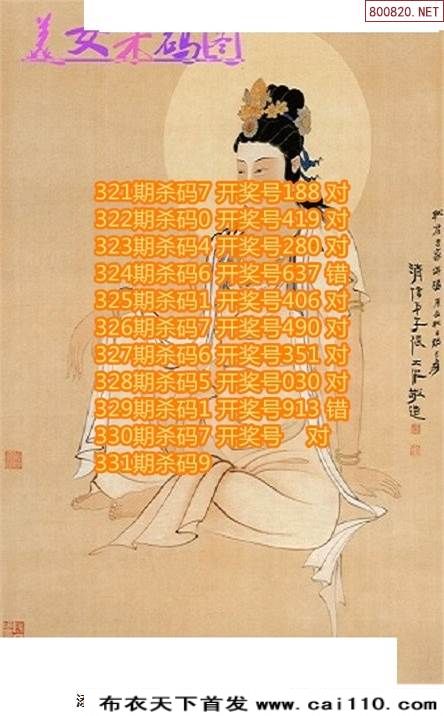 800820.NET
美女杀码图
321期杀码7 开奖号188 对
322期杀码0 开奖号419 对
323期杀码4 开奖号280 对
324期杀码6 开奖号637 错
325期杀码1 开奖号406 对
326期杀码7 开奖号490 对
327期杀码6 开奖号351 对
328期杀码5 开奖号030 对
329期杀码1 开奖号913 错
330期杀码7 开奖号 对
331期杀码9
布衣天下首发 www.cai110.com